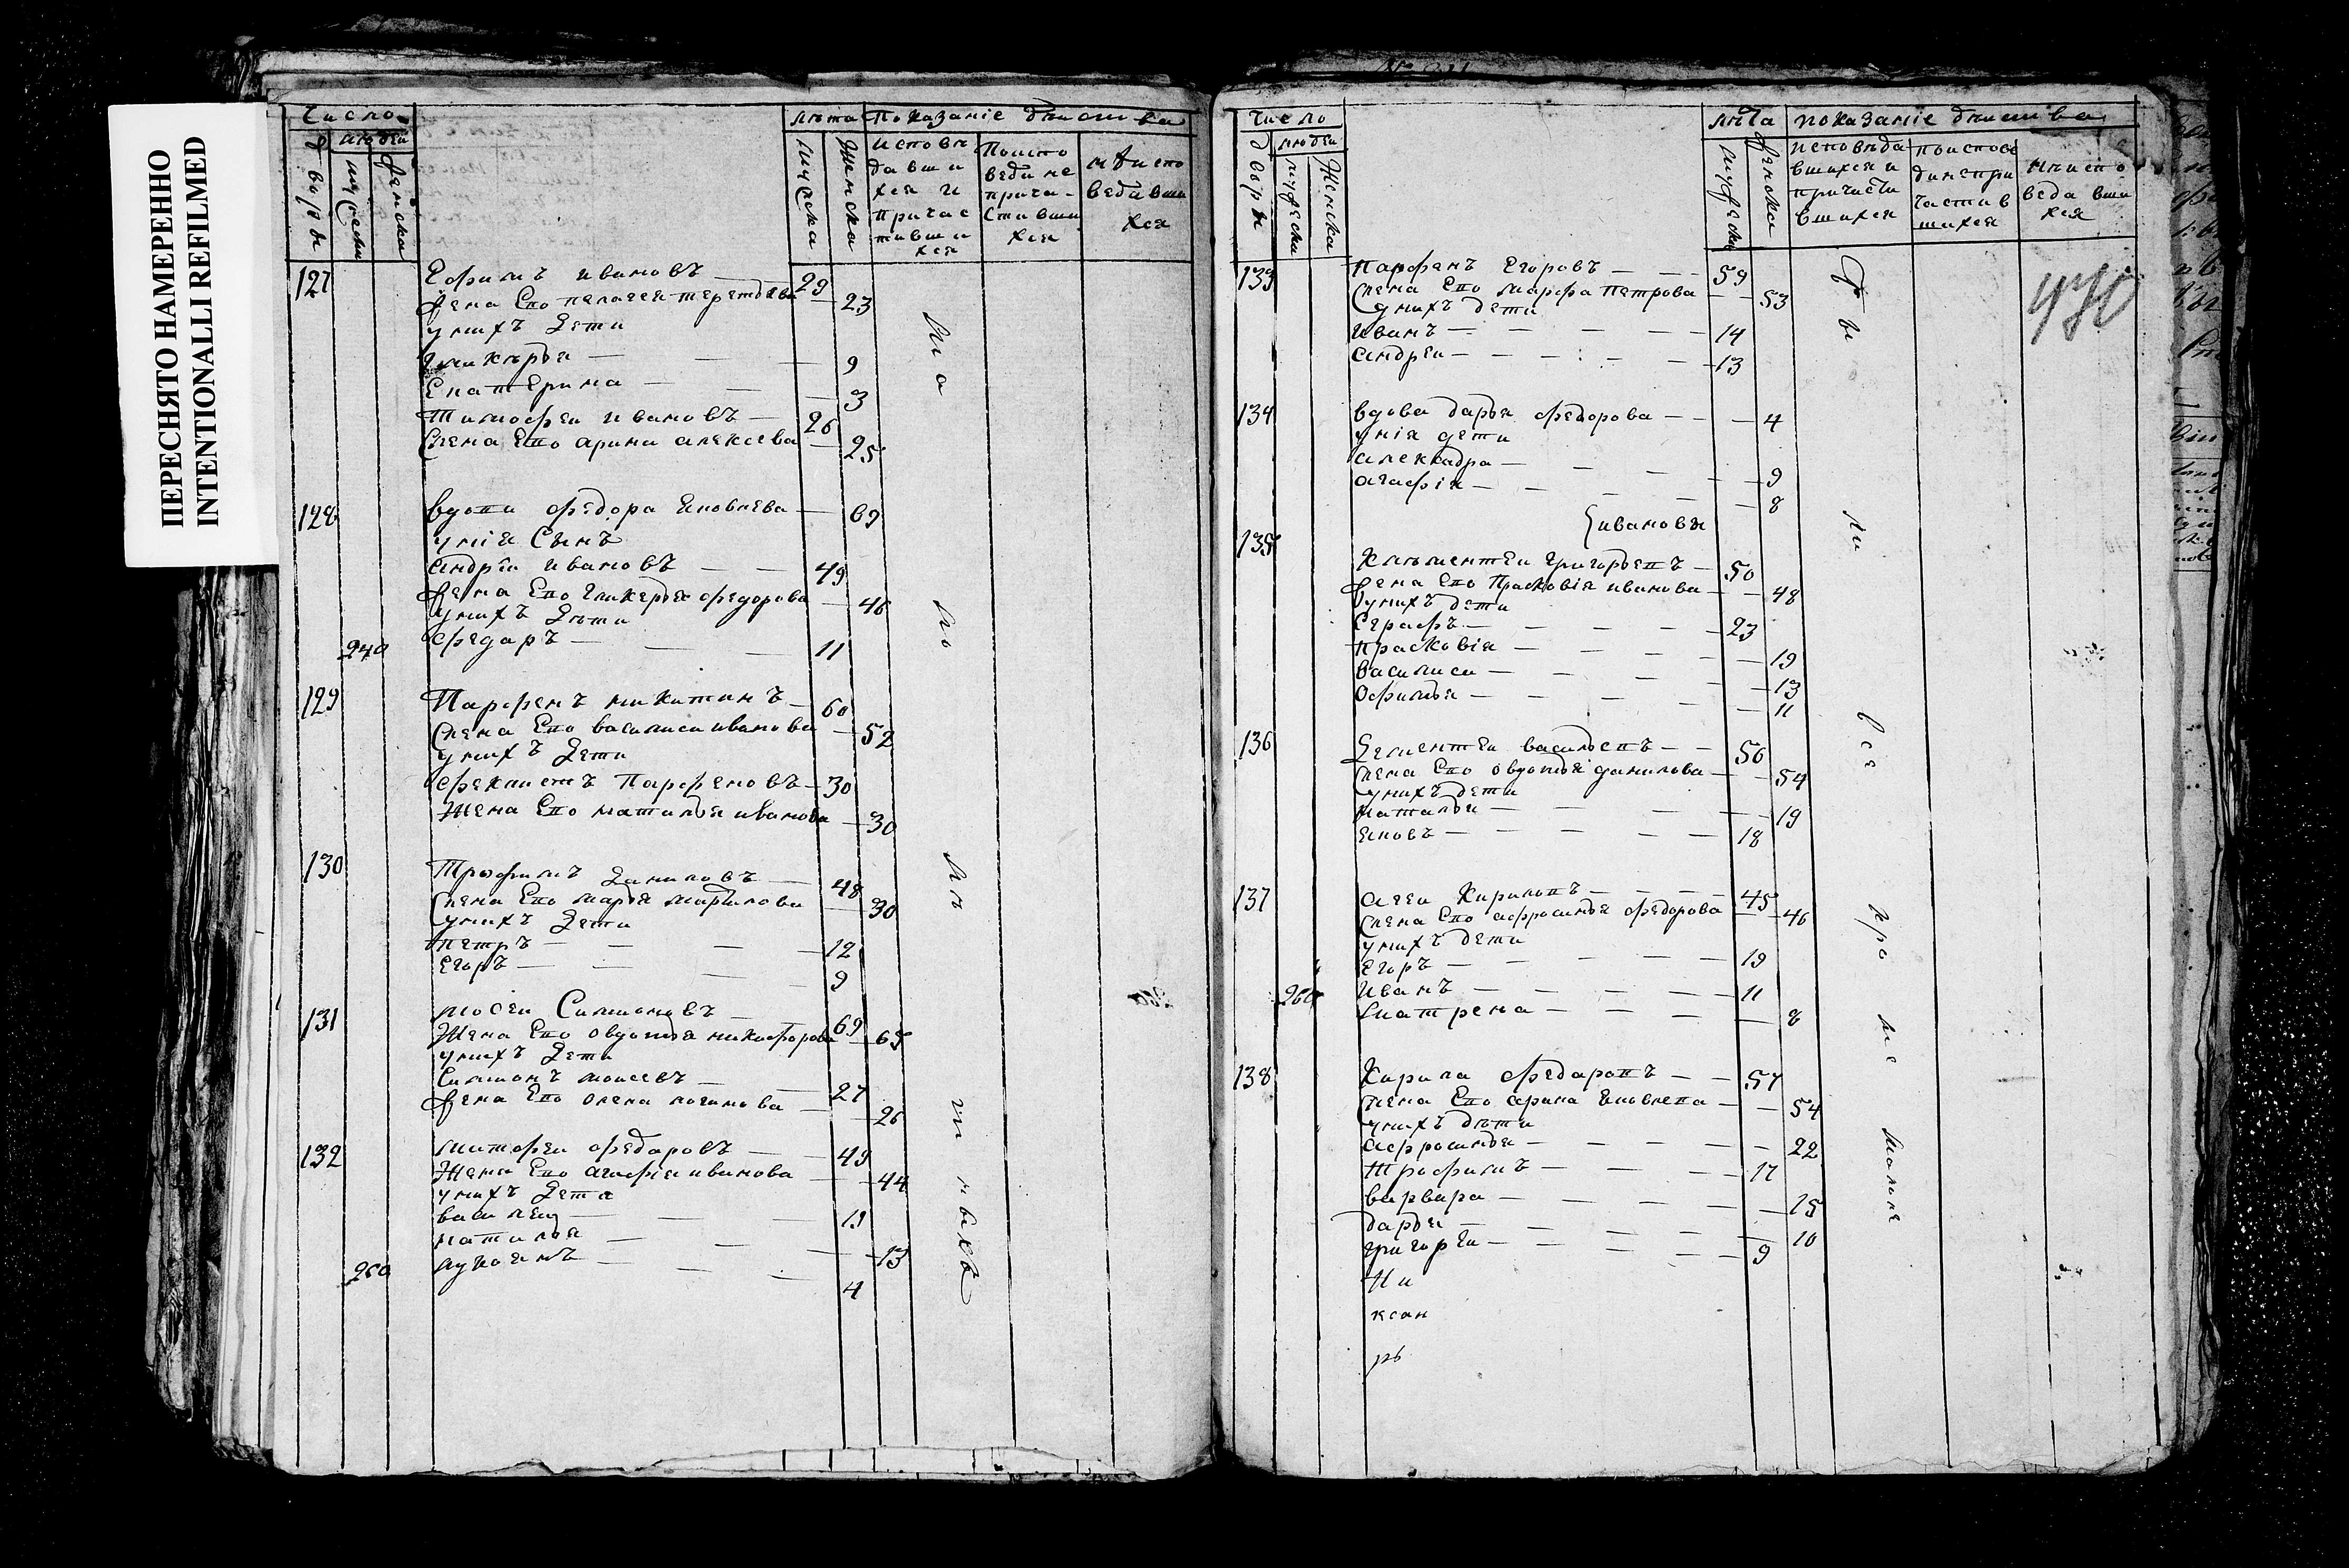 ПЕРЕСНЯТО НАМЕРЕННО
INTENTIONALLI REFILMED
Число
лѣта показаніе действа
людей
двора
мужеска
женска
мужска
женска
исповѣ
давши
хся и
причас
тивши
хся
поиспо
веди не
прича-
стивши
хся
неиспо
ведавши
хся
127
Ефимъ ивановъ 29
жена Его пелагея терентьева 23
унихъ дети
гликѣрья 9
Екатерина 3
Тимофеи ивановъ 26
Жена Его арина алексева 25
128
вдова федора Яковлева 69
унія Сынъ
андреи ивановъ 49
жена Его гликерья федорова 46
унихъ дѣти
240 федаръ 11
129
Парфенъ никитинъ 60
Жена Его василиса иванова 52
унихъ дети
феклистъ Парфеновъ 30
Жена Его наталья иванова 30
130
Трофимъ даниловъ 48
Жена Его марья 30
унихъ дети
петръ 12
Егоръ 9
131
мосеи Симионовъ 69
Жена Его овдотья никифорова 65
унихъ дети
Симионъ мосеевъ 27
жена Его олена логинова 26
132
митофеи федаровъ 49
Жена Его агафья иванова 44
унихъ дети
василеи 19
наталья 13
260 лукоянъ 4
число
лѣта показаніе действа
людеи
двора
мужеска
женска
мужеска
женска
исповѣда
вшихся и
причасти
вшихся
поиспове
динепри
частив
шихся
неиспо
ведавши
хся
430
133
Парфенъ Егоровъ 59
Жена Его марфа петрова 53
унихъ дети
иванъ 14
андреи 13
134
вдова дарья федорова 4
унія дети
алексадра 9
агафія 8
ивановы
135
Климентеи григорьевъ 50
жена Его Прасковія иванова 48
унихъ дети
Серафъ 23
прасковія 19
василиса 13
Офимья 11
136
Дементеи васильевъ 56
Жена Его овдотья данилова 54
унихъ дети
наталья 19
яковъ 18
137
агеи Кириловъ 45
Жена Его афросинья федорова 46
унихъ дети
егоръ 19
260 иванъ 11
матрена 8
138
Кирила федаровъ 57
Жена Его арина Яковлева 54
унихъ дѣти
афросинья 22
трофимъ 17
варвара 15
дарья 10
григореи 9
ксан
рь